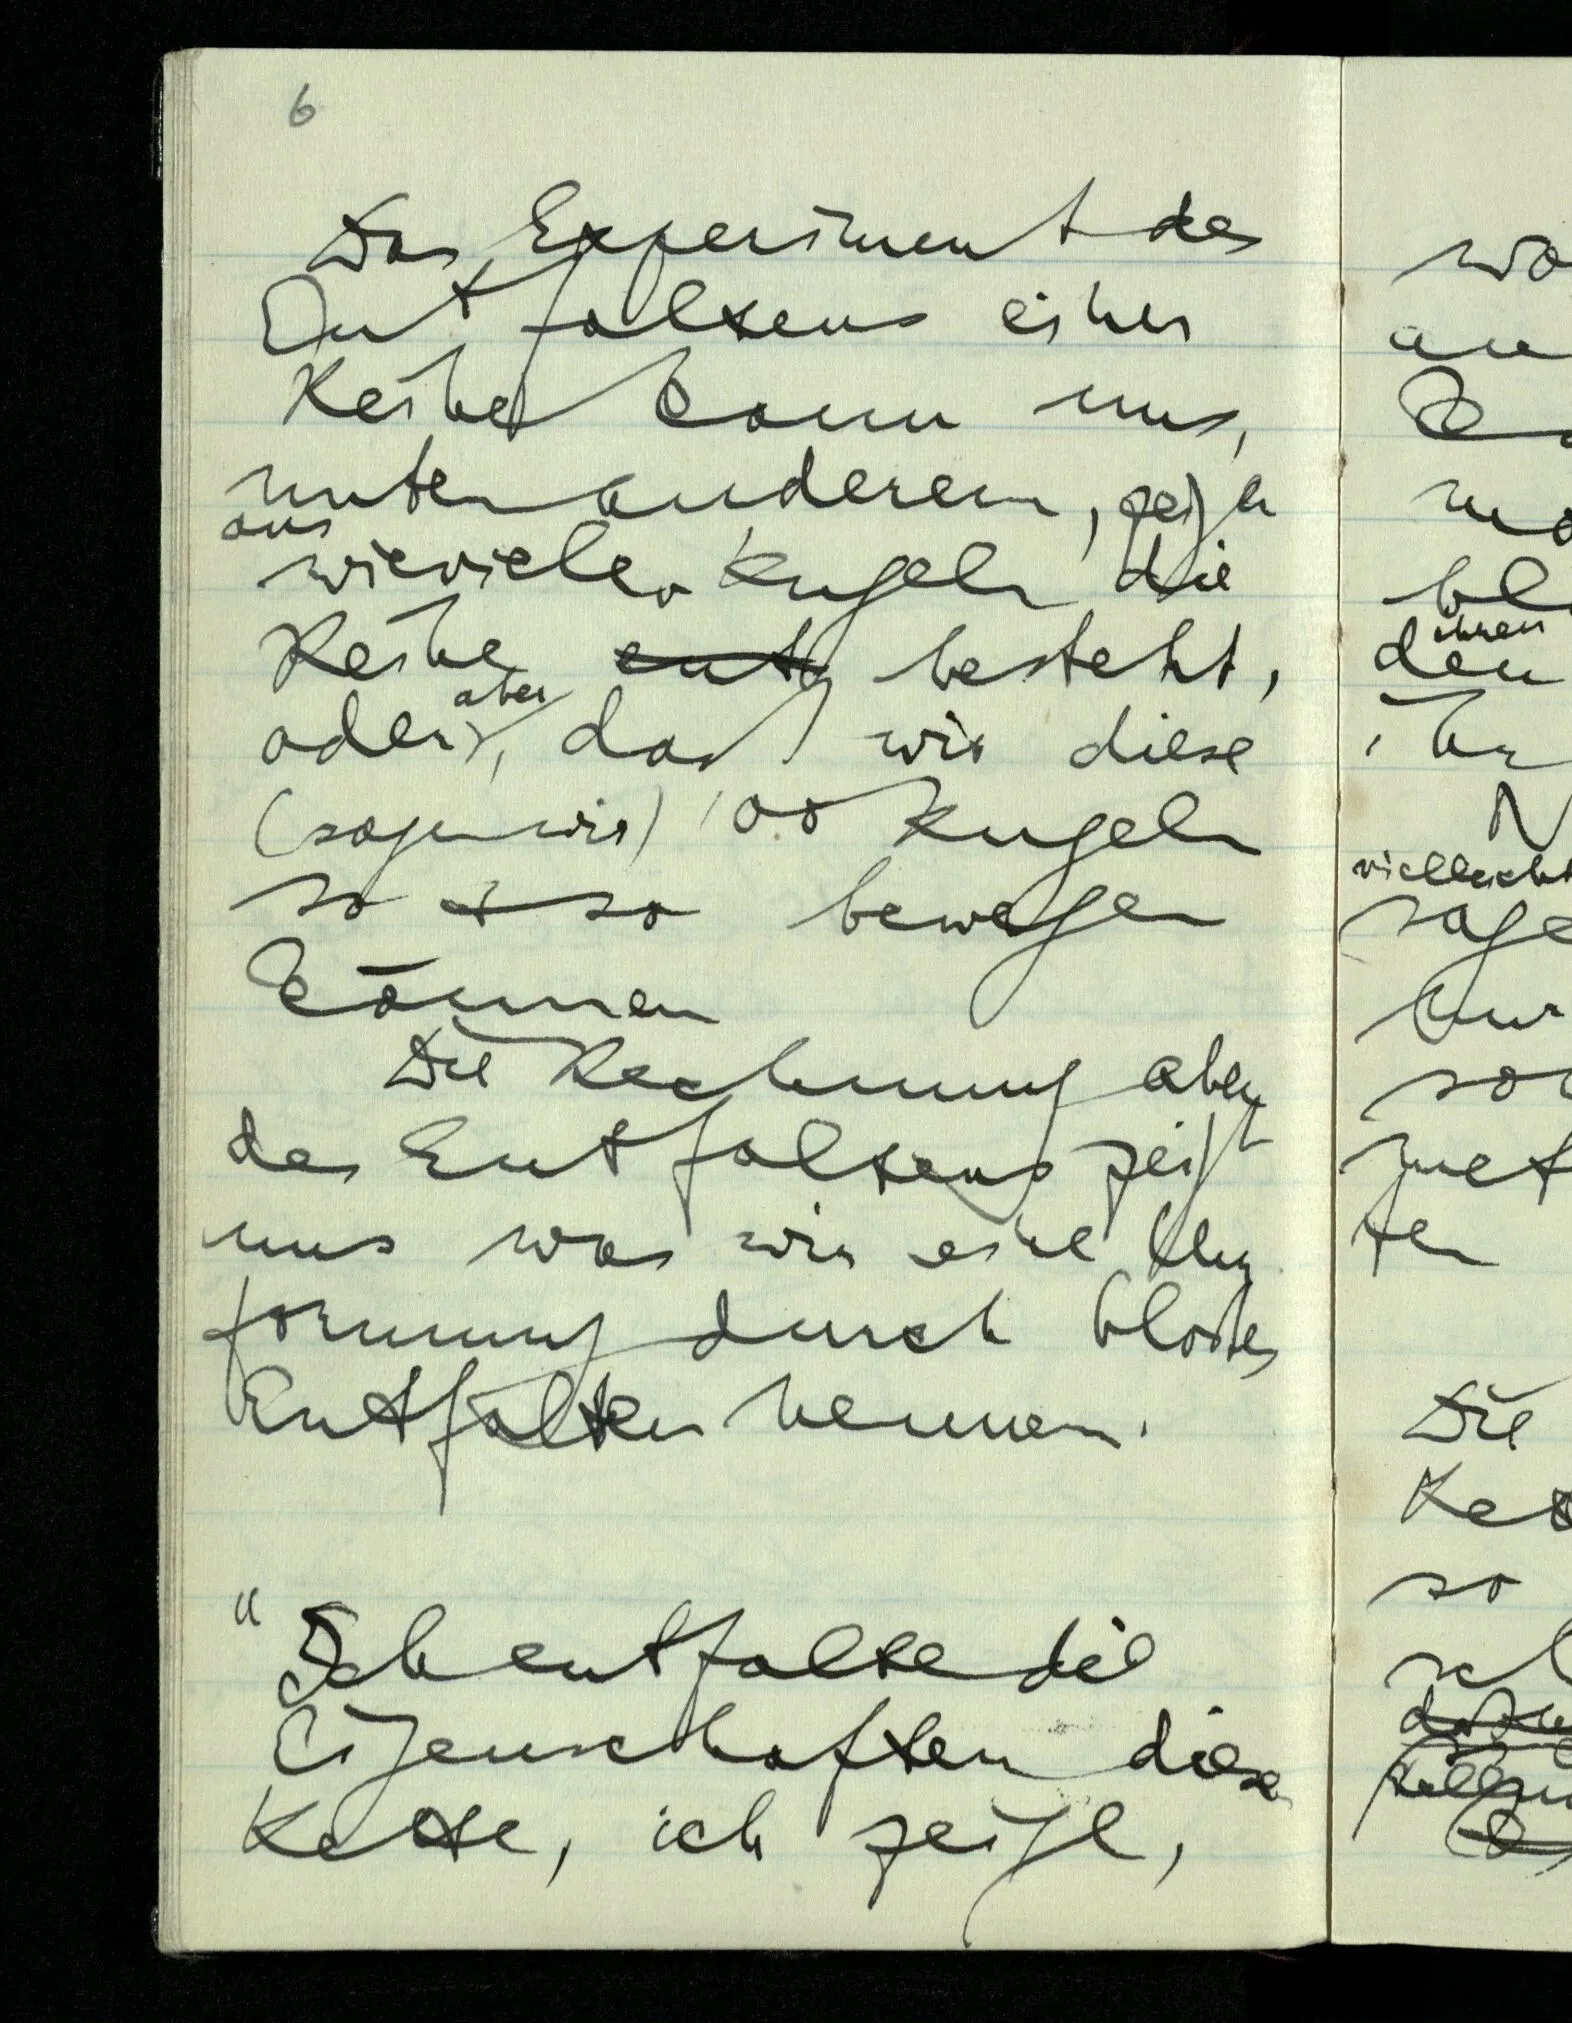 6
Das Experiment des
Entfaltens einer
Reihe kann uns,
unter anderem, zeigen
aus
wievielen Kugeln die
Reihe entf besteht,
oder aber, daß wir diese
(sagen wir) 100 Kugeln
so & so bewegen
können
Die Rechnung aber
des Entfaltens zeigt
uns was wir eine Um
formung durch bloßes
Entfalten nennen.
"Ich entfalte die
Eigenschaften dieser
Kette, ich zeige,
wo
den ihnen
vielleicht
sage
nur
so
Die
so